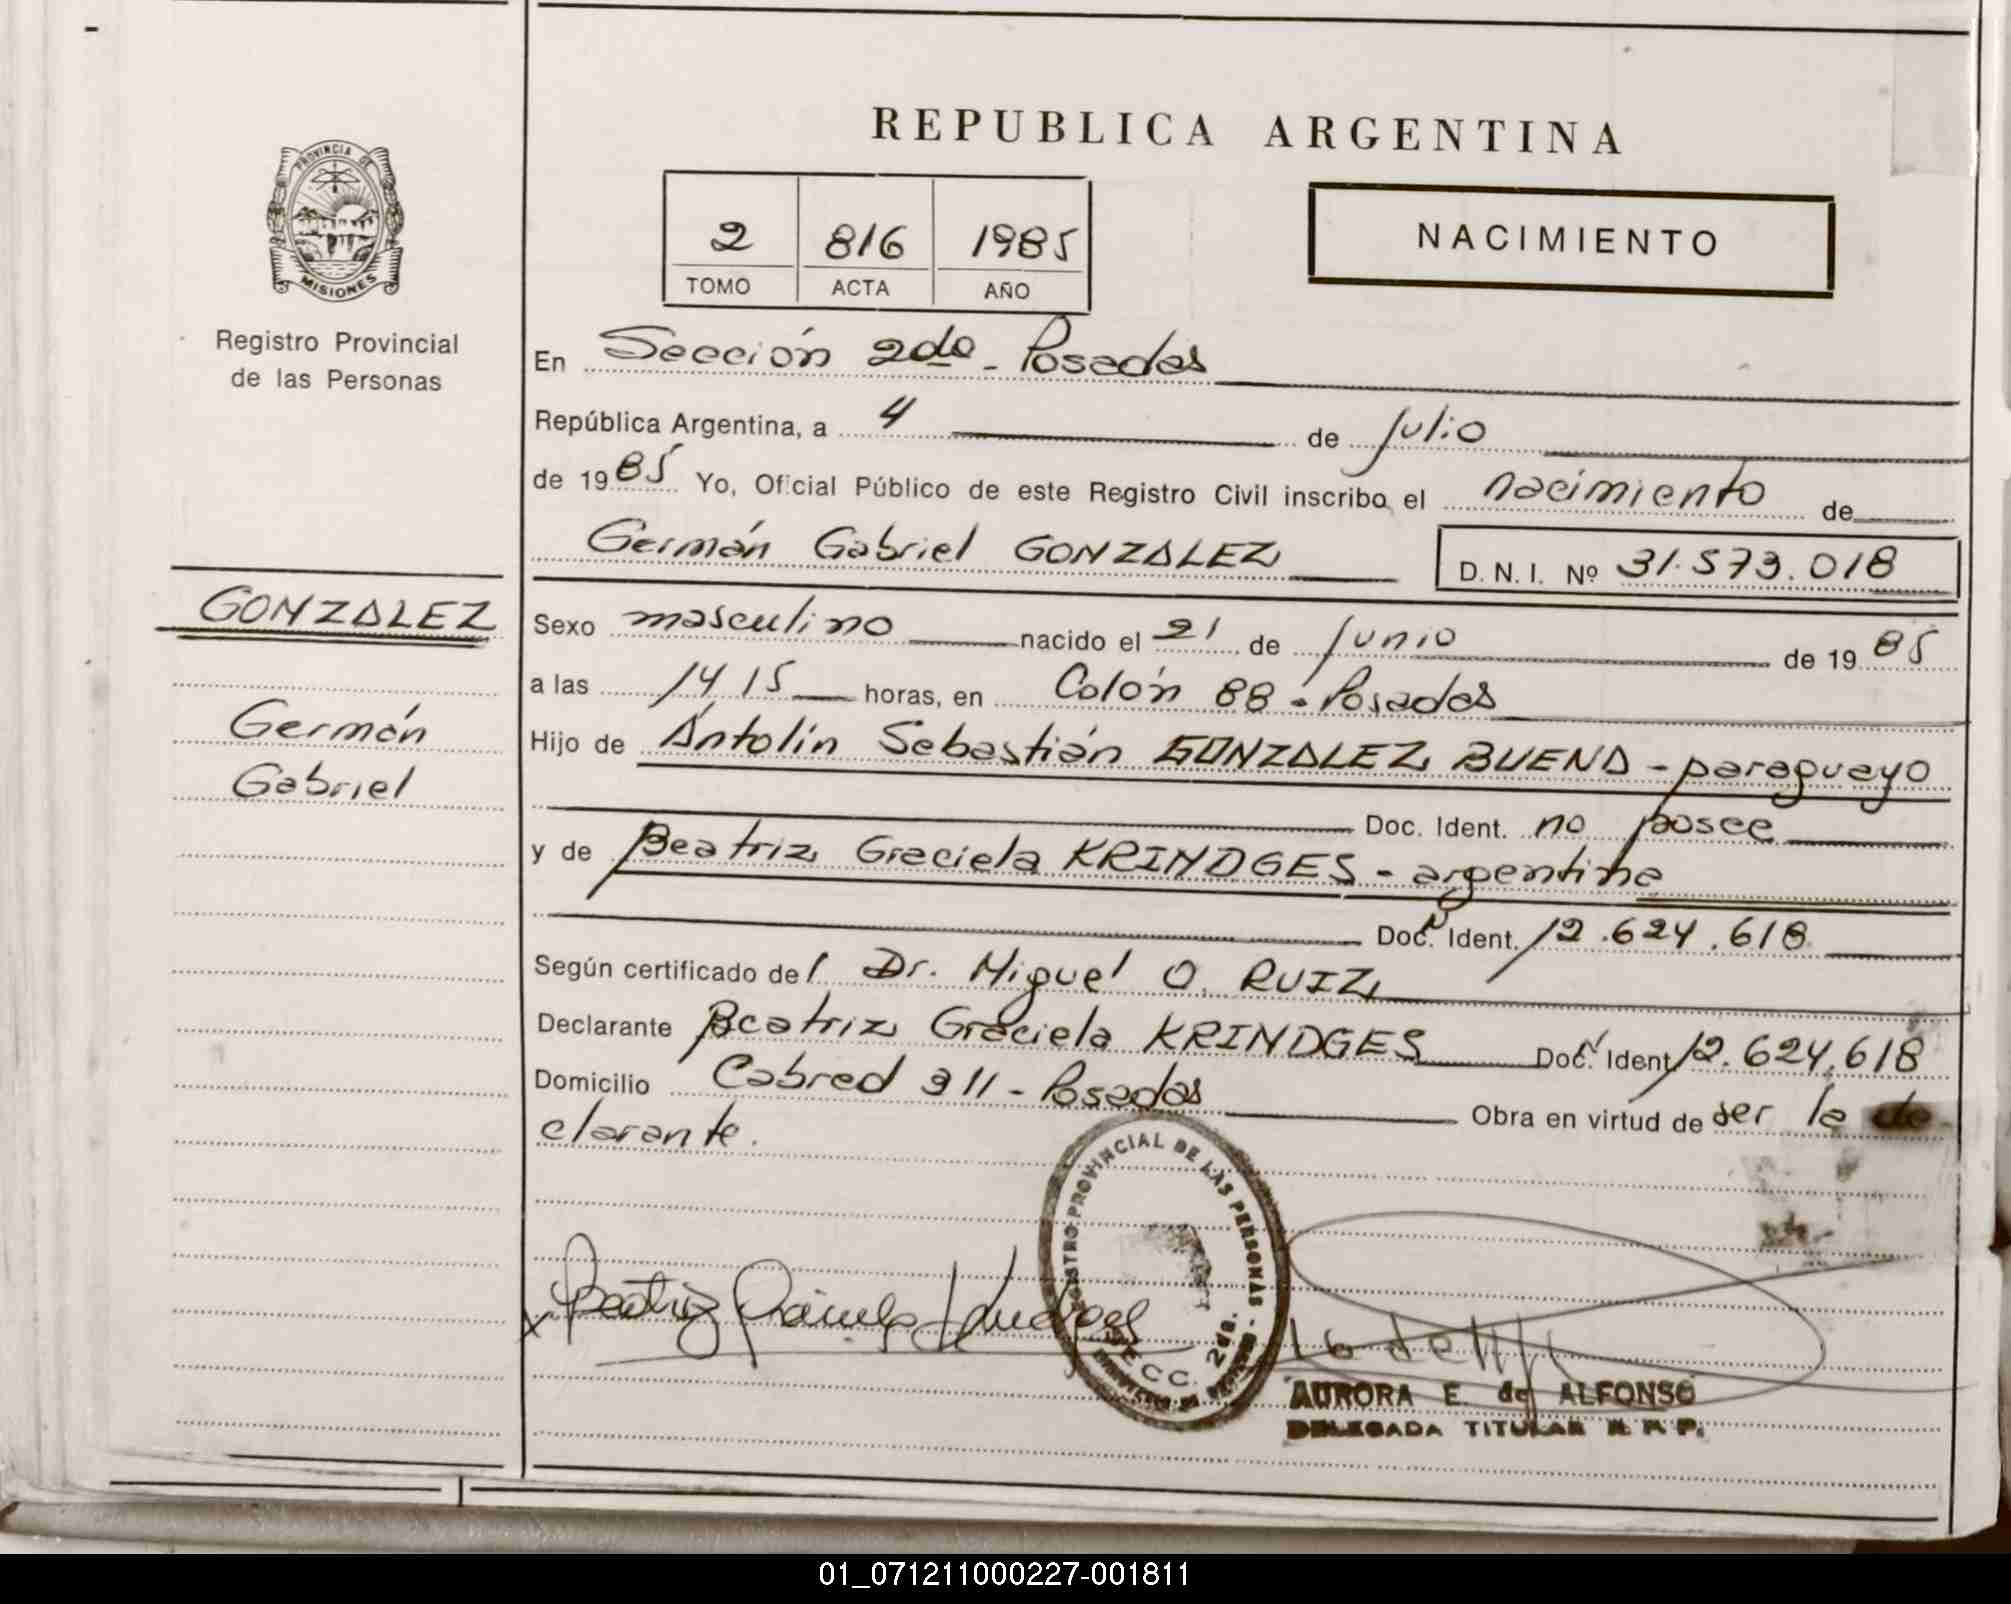 REPUBLICA ARGENTINA
PROVINCIA DE
MISIONES
Registro Provincial
de las Personas
2 816 1985
TOMO ACTA AÑO
NACIMIENTO
En Sección 2da - Posadas
República Argentina, a 4 de julio
de 1985 Yo, Oficial Público de este Registro Civil inscribo el nacimiento de
Germán Gabriel GONZALEZ D. N. I. Nº 31.573.018
GONZALEZ
Germán
Gabriel
Sexo masculino nacido el 21 de junio de 1985
a las 14 15 horas, en Colón 88 - Posadas
Hijo de Antolín Sebastián GONZALEZ BUENO - paraguayo
Doc. Ident. no posee
y de Beatriz Graciela KRINDGES - argentina
Doc. Ident. 12.624.618
Según certificado del Dr. Miguel O. RUIZ
Declarante Beatriz Graciela KRINDGES Doc. Ident 12.624.618
Domicilio Cabred 911 - Posadas Obra en virtud de ser la de
clarante.
REGISTRO PROVINCIAL DE LAS PERSONAS
SECC. 2da.
x Beatriz Graciela Krindges
AURORA E. de ALFONSO
DELEGADA TITULAR R. P. P.
01_071211000227-001811